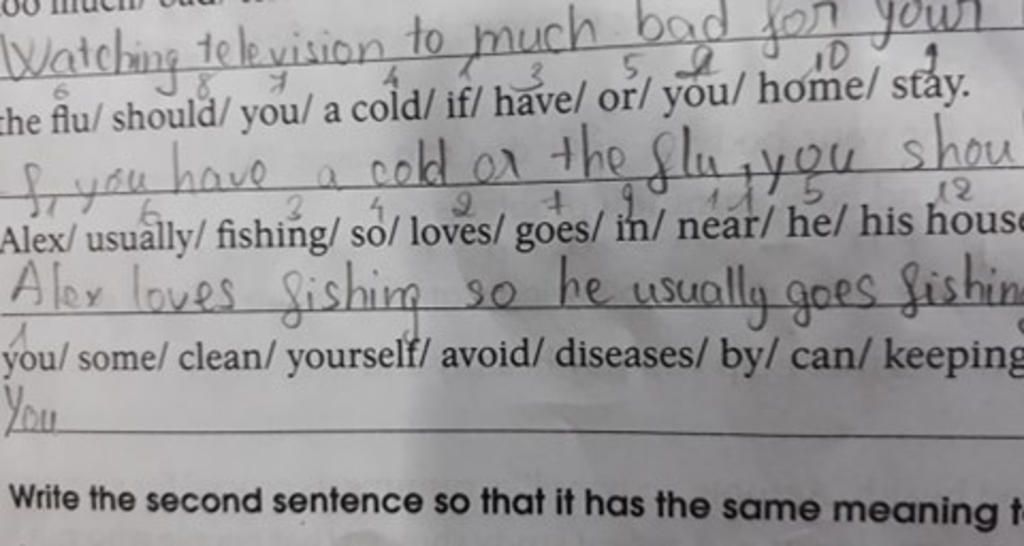 Watching television to much bad for your
6 8 7 4 1 3 5 2 10 9
the flu/ should/ you/ a cold/ if/ have/ or/ you/ home/ stay.
If, you have a cold or the flu, you shou
6 3 4 2 7 9 11 5 12
Alex/ usually/ fishing/ so/ loves/ goes/ in/ near/ he/ his house
Alex loves fishing so he usually goes fishing
1
you/ some/ clean/ yourself/ avoid/ diseases/ by/ can/ keeping
You
Write the second sentence so that it has the same meaning t